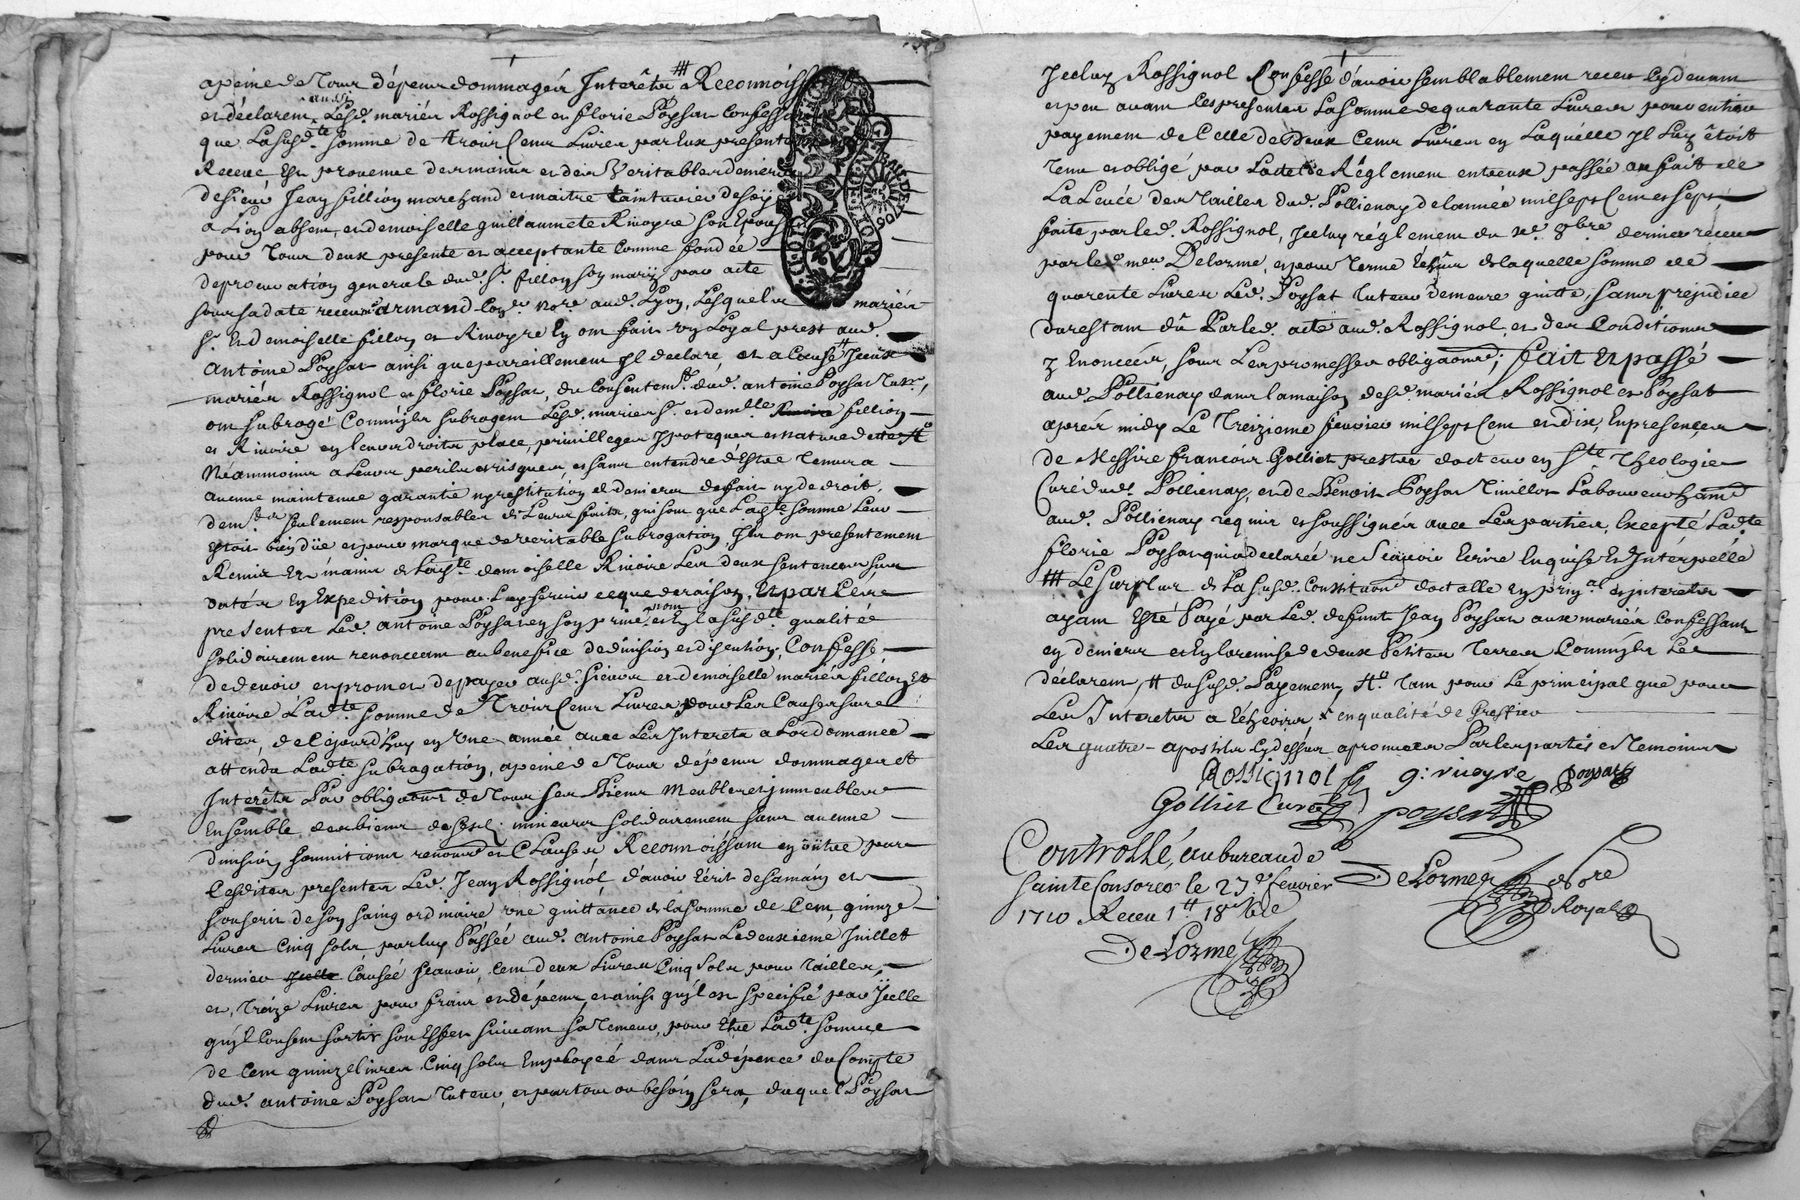 apeine de Tour dépens dommages Interêts # Reconnoiss
et déclarent aussi Lesd. mariés Rossignol et florie Poysat Confess
que Lasusd.te somme de Trois Cens Livres par Eux presentem
Receue Est provenue des mains et des veritables deniers
de sieur Jean fillion marchand et maitre tainturier de soÿe
a Lion absent, et demoiselle guillaumete Rivoyre son Epouse
pour Tous deux presente et acceptante comme fondée
de procuration generale dud. Sr. fillion son mary par acte
sous sa date receu me armand Coner. Nore. aud. Lyon, Lesquels mariés
Sr. Et demoiselle fillion et Rivoyre En ont fait un Loyal prest aud.
Antoine Poysat ainsi que pareillement Il declare, et a Cause # Iceux
mariés Rossignol et florie Poysat, du Consentem.t dud. antoine Poysat Tutr.,
ont subrogé Comm'Ils subrogent Lesd. mariés Sr. et demlle fillion
et Rivoire en leurs droits place, privilleges Ipoteques et nature de dete
Néammoins a Leurs perils et risques, et sans entendre d'Estre Tenus a
aucune maintenue garantie ny restitution de deniers de fait ny de droit,
seulement responsables de Leurs faits, qui sont que Ladte. somme Leur
Estoit bien düe et pour marque de veritable subrogation, Ils ont presentement
Remis Ez mains de Ladte. demoiselle Rivoire Les deux sentences sus
datées En Expedition pour Luy servir ce que de raison, Et par Ces
presentes Led. antoine Poysat en son privé nom et En la susd.te qualité
solidairement renonceant au benefice de division et discution, Confesse
de devoir et promet de payer ausd. sieurs et demoiselle mariés fillion Et
Rivoire Ladte. somme de Trois Cens Livres pour Les Causes sus
dites, de Cejourd'huy en Une année avec Les Interêts a l'ordonnance
attendu Ladte. subrogation, apeine de Tous dépens dommages et
Interêts Par obligaons. de Tous ses Biens Meubles et immeubles
Ensemble des biens desd. mineurs solidairement sans aucune
division soumitions renons. et Clauses Reconnoissant en oûtre par
Lesdites presentes Led. Jean Rossignol, d'avoir Ecrit de sa main et
souscrit de son saing ordinaire une quittance de la somme de Cent quinze
Livres Cinq sols, par luy Passée aud. antoine Poysat Le deuxieme Juillet
dernier Causée scavoir, Cent deux Livres Cinq Sols pour Tailles,
et Treize Livres pour frais et dépens, et ainsi qu'Il est specifié par Icelle
qu'Il Consent sortir son Effet suivant sa Teneur, pour Etre Ladte. somme
de Cent quinze Livres Cinq sols Employeé dans La dépence du Compte
dud. antoine Poysat Tuteur, et partout ou besoin sera, duquel Poysat
Icelluy Rossignol Confesse d'avoir semblablement receu Cydevant
et peu avant Les presentes La somme de quarante Livres pour entier
payement de Celle de deux Cens Livres En Laquelle Il Luy êtoit
Tenu et obligé par Ladte. Réglement entreux passée au fait de
La Levée des Tailles dud. Pollienay de l'année mil sept Cent et sept
faite par led. Rossignol, Icelluy réglement du xe. 8bre. dernier receu
par led. me. Delorme, et pour Terme Echûs de laquelle somme de
quarente Livres Led. Poysat Tuteur demeure quitte, sans préjudice
du restant dû Par led. acte aud. Rossignol, et des Conditions
y Enoncées, sous Les promesses obligaons.; fait Et passé
aud. Pollienay dans la maison desd. mariés Rossignol et Poysat
aprés midy Le Treizieme fevrier mil sept Cent et dix, En presence
de Messire françois Golliet prestre docteur en Ste. Theologie
Curé dud. Pollienay, et de Benoit Poysat Tivillot Laboureur
aud. Pollienay requis et soussignés avec Les parties, Excepté Ladte.
florie Poysat qui a declarée ne Scavoir Ecrire Enquise Et Interpellée
# Le surplus de La susd. Constituon. dotalle en prin.al et interets
ayant Esté Payé par Led. defunt Jean Poysat aux mariés Confessants
en deniers et En la remise de deux Petites Terres Comm'Ils Le
déclarent, # du susd. Payement, # Tant pour Le principal que pour
Les Interets a Echeoir x en qualité de Greffier
Les quatre apostilles Cydessus aprouvées Par les parties et Temoins
Rossignol g. rivoyre poysat
Golliet Curé poysat
Controllé, au bureau de
Sainte Consorce le 23e. fevrier DeLorme Nore
1710 Receu 1tt 18s Royal
DeLorme